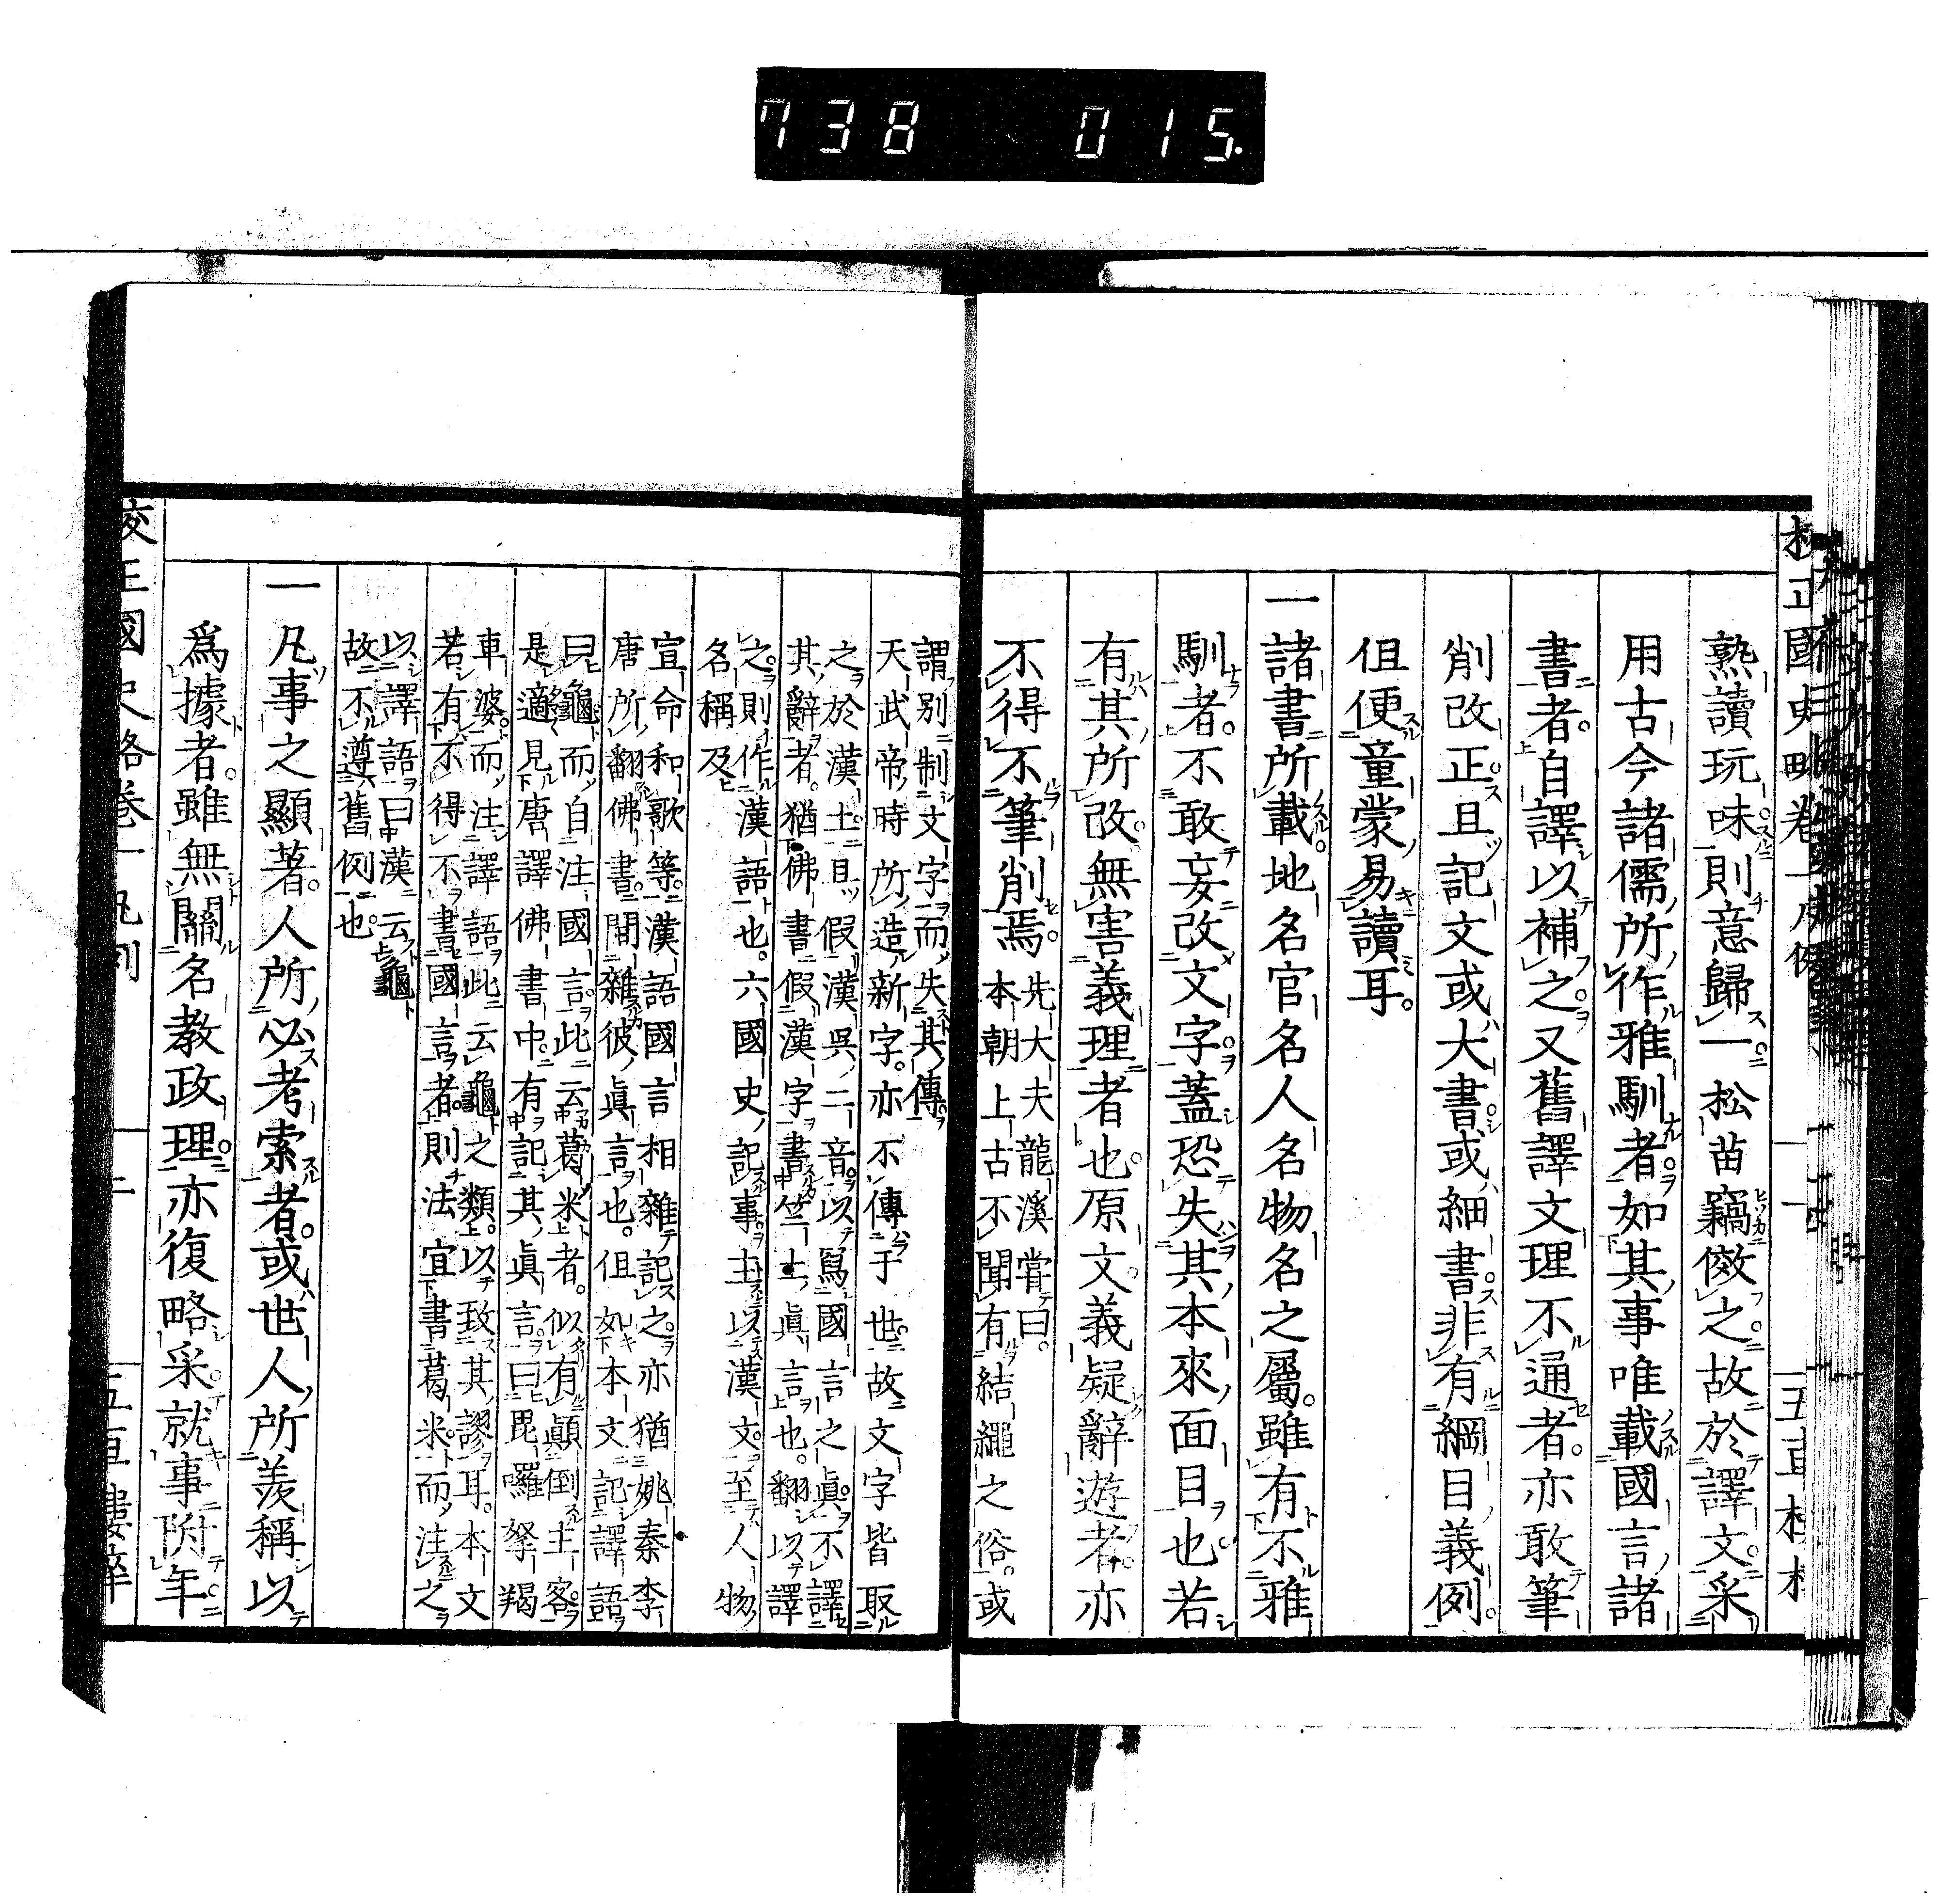 738 015.
熟讀玩味則意歸一松苗竊倣之故於譯文采
用古今諸儒所作雅馴者如其事唯載國言諸
書者自譯以補之又舊譯文理不通者亦敢筆
削改正且記文或大書或細書非有綱目義例
但便童蒙易讀耳
一諸書所載地名官名人名物名之屬雖有不雅
馴者不敢妄改文字蓋恐失其本來面目也若
有其所改無害義理者也原文義疑辭遊者亦
不得不筆削焉
先大夫龍溪嘗曰
本朝上古不聞有結繩之俗或
謂別制文字而失其傳
天武帝時所造新字亦不傳于世故文字皆取
之於漢土且假漢吳二音以寫國言之眞不譯
其辭者猶佛書假漢字書竺土眞言也翻以譯
之則作漢語也六國史記事主以漢文至人物
名稱及
宣命和歌等漢語國言相雜記之亦猶姚秦李
唐所翻佛書間雜彼眞言也但如本文記譯語
曰龜而自注國言此云葛米者似有顚倒主客
是適見唐譯佛書中有記其眞言曰毘囉拏羯
車婆而注譯語此云龜之類以致其謬耳本文
若有不得不書國言者則法宜書葛米而注之
以譯語曰漢云龜
故不遵舊例也
一凡事之顯著人所必考索者或世人所羨稱以
爲據者雖無關名教政理亦復略采就事附年